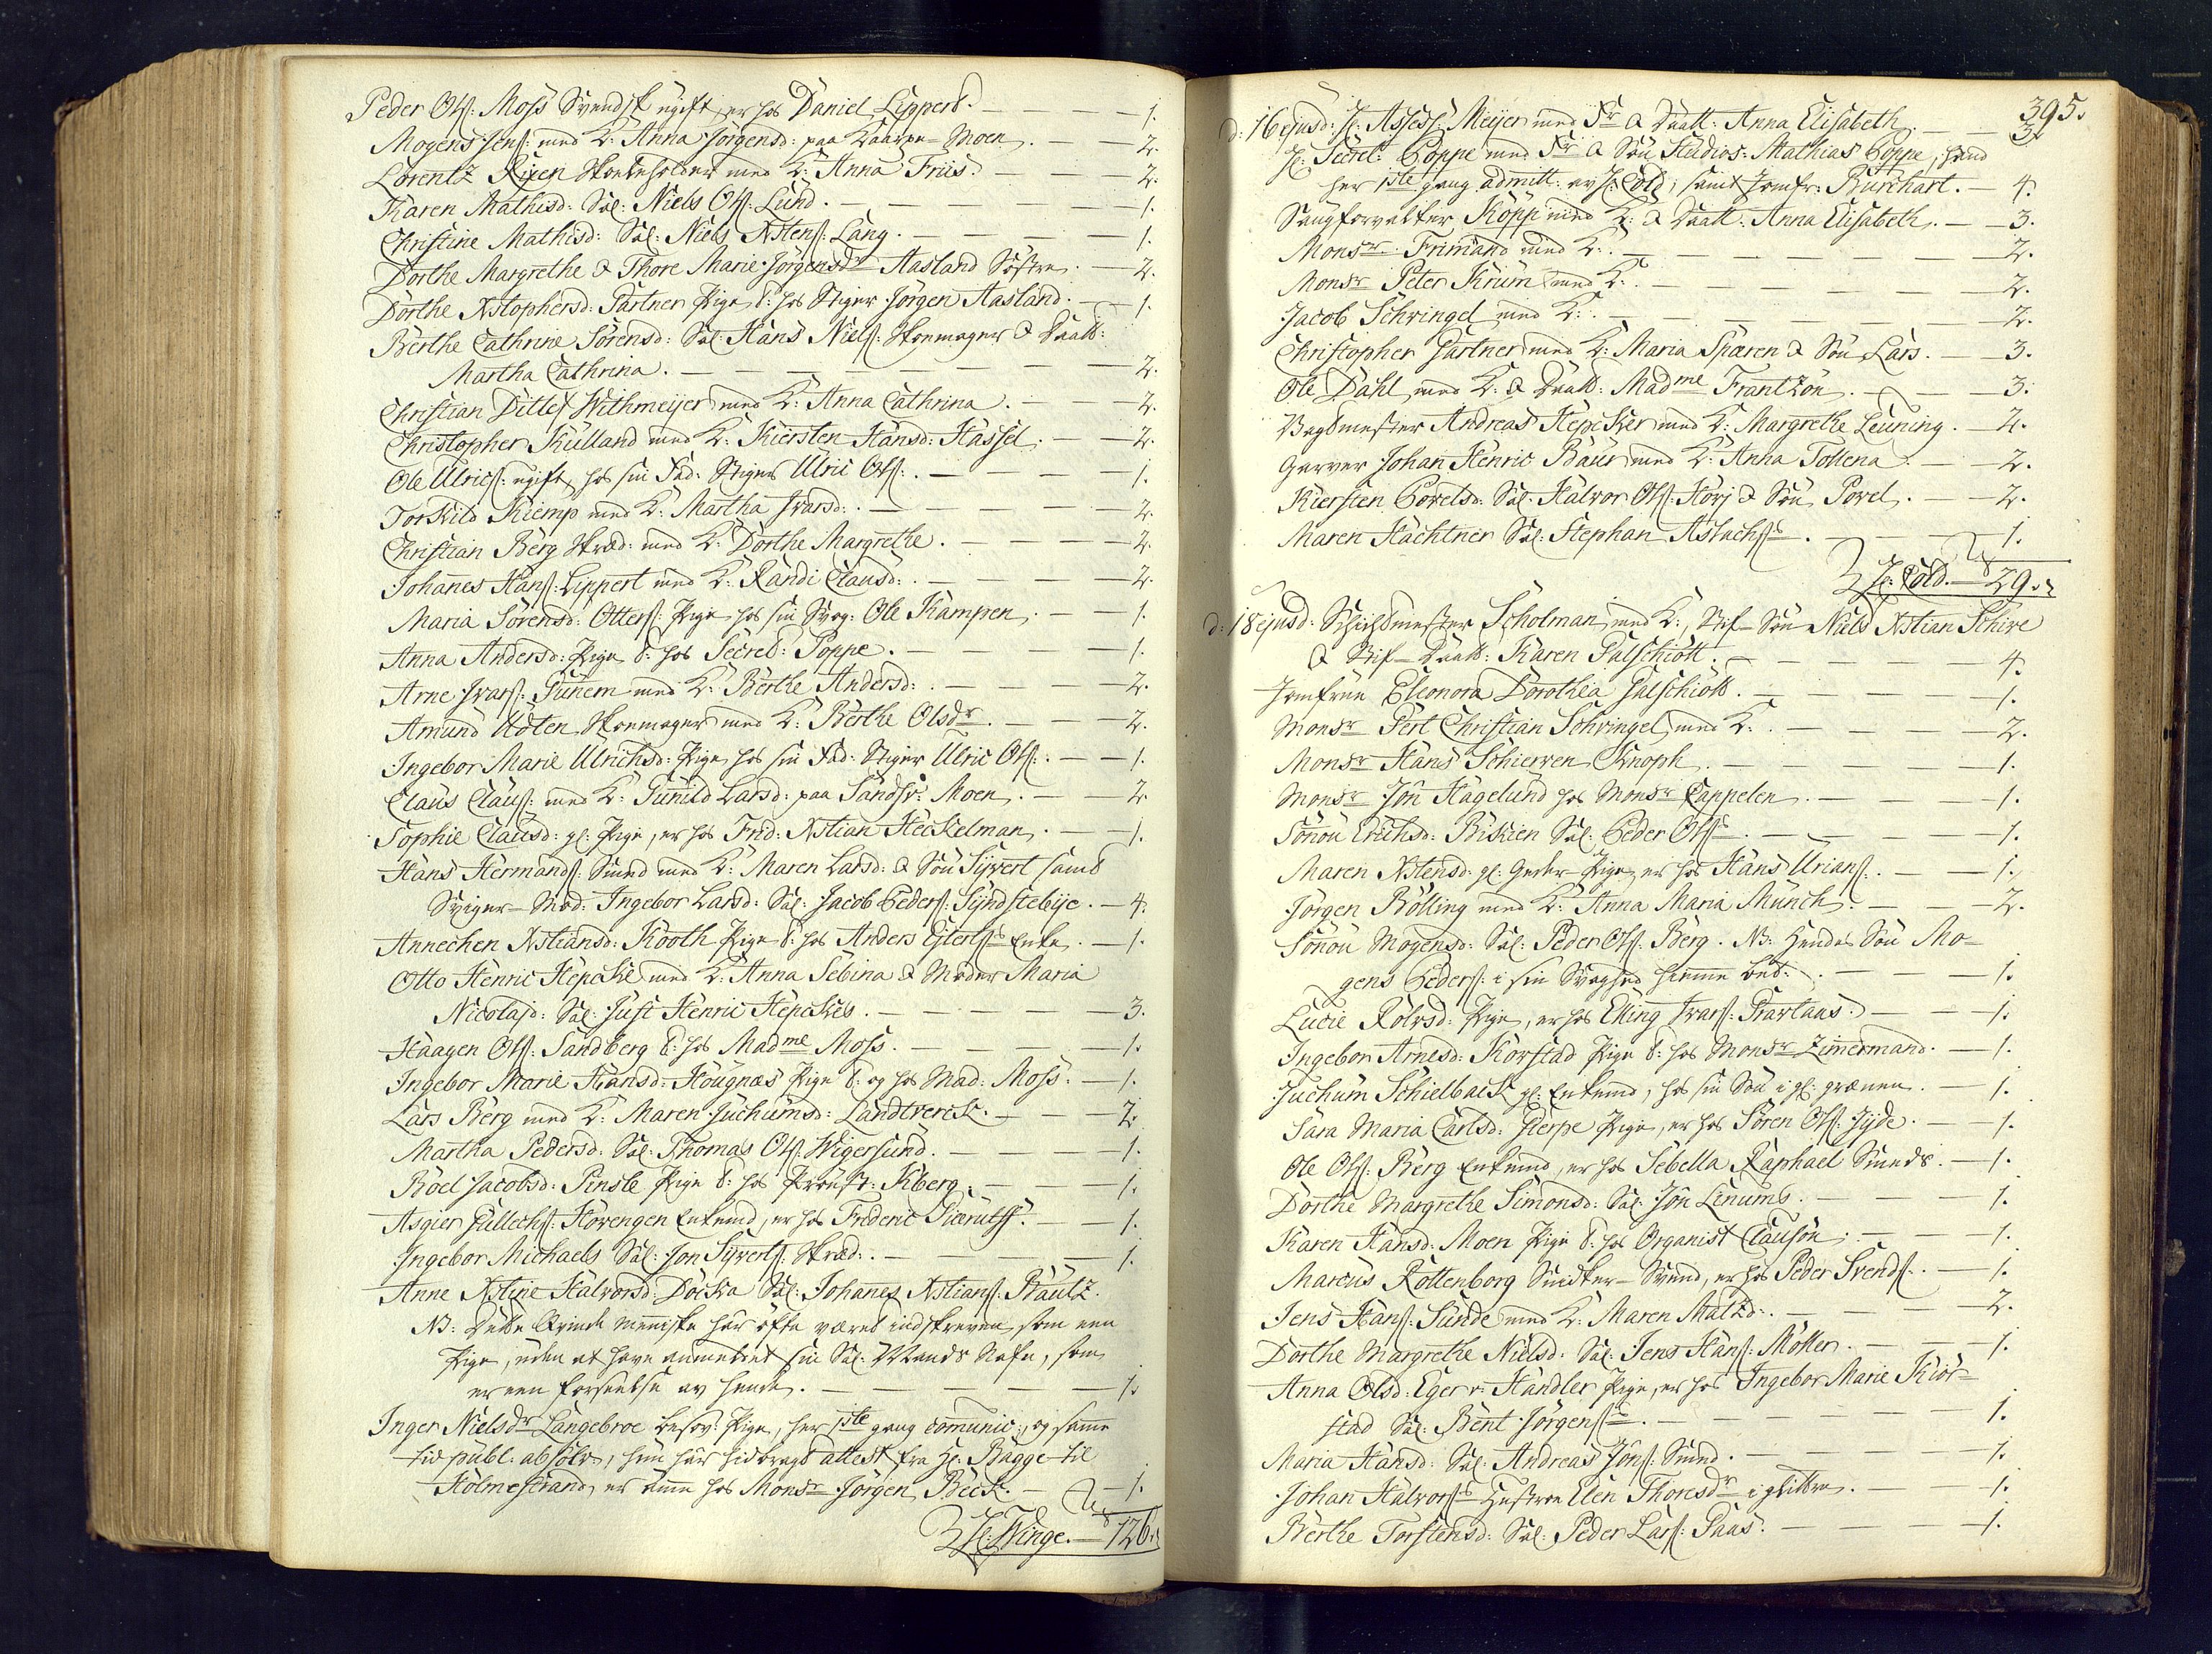 Peder Olß: Moss Svendsk ugift, er hos Daniel Lippert. — 1.
Mogens Jenß: med K: Anna Jörgensd: paa Kaarpe-Moen. — 2.
Lorentz Rijen Skoeleholder med K: Anna Friis. — 2.
Karen Mathisd: Sal: Niels Olß: Lund. — 1.
Christine Mathisd: Sal: Niels Xstenß: Lang. — 1.
Dorthe Margrethe & Thore Marie Jörgensdr Aasland Söstre. — 2.
Dorthe Xstophersd: Gärtner Pige t: hos Stiger Jörgen Aasland. — 1.
Berthe Cathrine Sörensd: Sal: Hans Nielß: Skoemager & Daatt:
Martha Cathrina. — 2.
Christian Ditlef Withmeijer med K: Anna Cathrina. — 2.
Christopher Kulland med K: Kiersten Hansd: Hassel. — 2.
Ole Ulricß: ugift, hos sin Fad: Stiger Ulric Olß: — 1.
Torkild Kiemp med K: Martha Ivarsd: — 2.
Christian Berg Skræd: med K: Dorthe Margrethe. — 2.
Johanes Hanß: Lippert med K: Randi Clausd: — 2.
Maria Sörensd: Otterß: Pige hos sin Svog: Ole Kampen. — 1.
Anna Andersd: Pige t: hos Secret: Poppe. — 1.
Arne Ivarß: Gunem med K: Berthe Andersd: — 2.
Amund Udten Skoemager med K: Berthe Olsdr. — 2.
Ingebor Marie Ulrichsd: Pige hos sin Fad: Stiger Ulric Olß: — 1.
Claus Clauß: med K: Gunild Larsd: paa Sandsv: Moen. — 2.
Sophie Clausd: gl: Pige, er hos Frid: Xstian Heckelman. — 1.
Hans Hermandß: Smed med K: Maren Larsd: & Sön Sijvert samt
Sviger-Mod: Ingebor Larsd: Sal: Jacob Pederß: Syndstebije. — 4.
Annechen Xstiansd: Kooth Pige t: hos Anders Ejlertß Enke. — 1.
Otto Henric Hepcke med K: Anna Sebina & Moder Maria
Nicolajd: Sal: Just Henric Hepckes. — 3.
Haagen Olß: Sandberg t: hos Madme Moss. — 1.
Ingebor Marie Hansd: Hougnæs Pige t: og hos Mad: Moss. — 1.
Lars Berg med K: Maren Juchumsd: Landtverck. — 2.
Martha Pedersd: Sal: Thomas Olß: Wigersund. — 1.
Böel Jacobsd: Pinsle Pige t: hos Provst: Kiberg. — 1.
Asgier Gullechß: Hovengen Enkemd, er hos Frideric Giærulff. — 1.
Ingebor Michaels Sal: Jon Sijvertß: Skræd: — 1.
Anne Xstine Halvorsd: Docka Sal: Johanes Xstianß: Bautz.
NB: Dette Qvinde Menniske har ofte været indskreven som een
Pige, uden at have anmeldet sin Sal: Mands Nafn, som
er een forseelse av hende. — 1.
Inger Nielsdr Langebroe besov: Pige, her 1ste gang comunic:, og samme
tid publ: absolv:, hun har hidbragt attest fra Hr: Bagge til
Holmestrand, er ame hos Monsr Jörgen Beck. — 1.
Hr: Winge. — 126.
395.
d: 16 ejusd: Hr: Assess: Meijer med Fr & Daatt: Anna Elisabeth. — 3.
Hr: Secret: Poppe med Fr & Sön Studios: Mathias Poppe, hand
her 1ste gang admitt: av Hr: Cold; samt Jomfr: Burchart. — 4.
Saugforvalter Köpp med K: & Daatt: Anna Elisabeth. — 3.
Monsr Frimand med K: — 2.
Monsr Peter Krum med K: — 2.
Jacob Schvingel med K: — 2.
Christopher Gärtner med K: Maria Spæren & Sön Lars. — 3.
Ole Dahl med K: & Daatt: Madme Frantzön. — 3.
Bagtmester Andreas Hepcker med K: Margrethe Leuning. — 2.
Garver Johan Henric Baur med K: Anna Tollena. — 2.
Kiersten Povelsd: Sal: Halvor Olß: Hörj & Sön Povel. — 2.
Maren Hachtner Sal: Stephan Aslachß. — 1.
Hr: Cold. — 29.
d: 18 ejusd: Schichtmester Scholman med K:, Stif-Sön Niels Xstian Schive
& Stif-Daatt: Karen Galschiött. — 4.
Jomfrue Eleonora Dorothea Galschiött. — 1.
Monsr Gert Christian Schvingel med K: — 2.
Monsr Hans Schierven Knoph. — 1.
Monsr Jön Hagelund hos Monsr Cappelen. — 1.
Sönöu Erichsd: Biskien Sal: Peder Olß. — 1.
Maren Xstensd: gl: Pige, er hos Hans Urianß: — 1.
Jörgen Bölling med K: Anna Maria Munch. — 2.
Sönöu Mogensd: Sal: Peder Olß: Berg. NB: Hendes Sön Mo-
gens Pederß: i sin Svaghed hiemme bet: — 1.
Lucie Rolvsd: Pige, er hos Elling Ivarß: Travtaus. — 1.
Ingebor Arnesd: Korstad Pige t: hos Monsr Zimermand. — 1.
Juchum Schielback gl: Enkemd, hos sin Sön i gl: grænen. — 1.
Sara Maria Carlsd: Gierpe Pige, er hos Sören Olß: Jijde. — 1.
Ole Olß: Berg Enkemd, er hos Sebella Raphael Smeds. — 1.
Dorthe Margrethe Simonsd: Sal: Jön Linums. — 1.
Karen Hansd: Moen Pige t: hos Organist Clausön. — 1.
Marcus Rottenborg Snedker-Svend, er hos Peder Svendß: — 1.
Jens Hanß: Sunde med K: Maren Maltzd: — 2.
Dorthe Margrethe Nielsd: Sal: Jens Hanß: Möller. — 1.
Anna Olsd: Eger v: Handler Pige, er hos Ingebor Marie Kiör-
stad Sal: Bent Jörgenß. — 1.
Maria Hansd: Sal: Andreas Jönß: Smed. — 1.
Johan Halvorß Hustroe Elen Thoresdr i glitre. — 1.
Berthe Torstensd: Sal: Peder Larß: Paas. — 1.